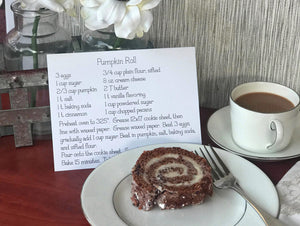 Pumpkin Roll
3 eggs 3/4 cup plain flour, sifted
1 cup sugar 8 oz cream cheese
2/3 cup pumpkin 2 T butter
1 t. salt 1 t. vanilla flavoring
1 t. baking soda 1 cup powdered sugar
1 t. cinnamon 1 cup chopped pecans
Preheat oven to 325°. Grease 12x17 cookie sheet, then
line with waxed paper. Grease waxed paper. Beat 3 eggs,
gradually add 1 cup sugar. Beat in pumpkin, salt, baking soda,
and sifted flour.
Pour onto the cookie sheet.
Bake 15 minutes.